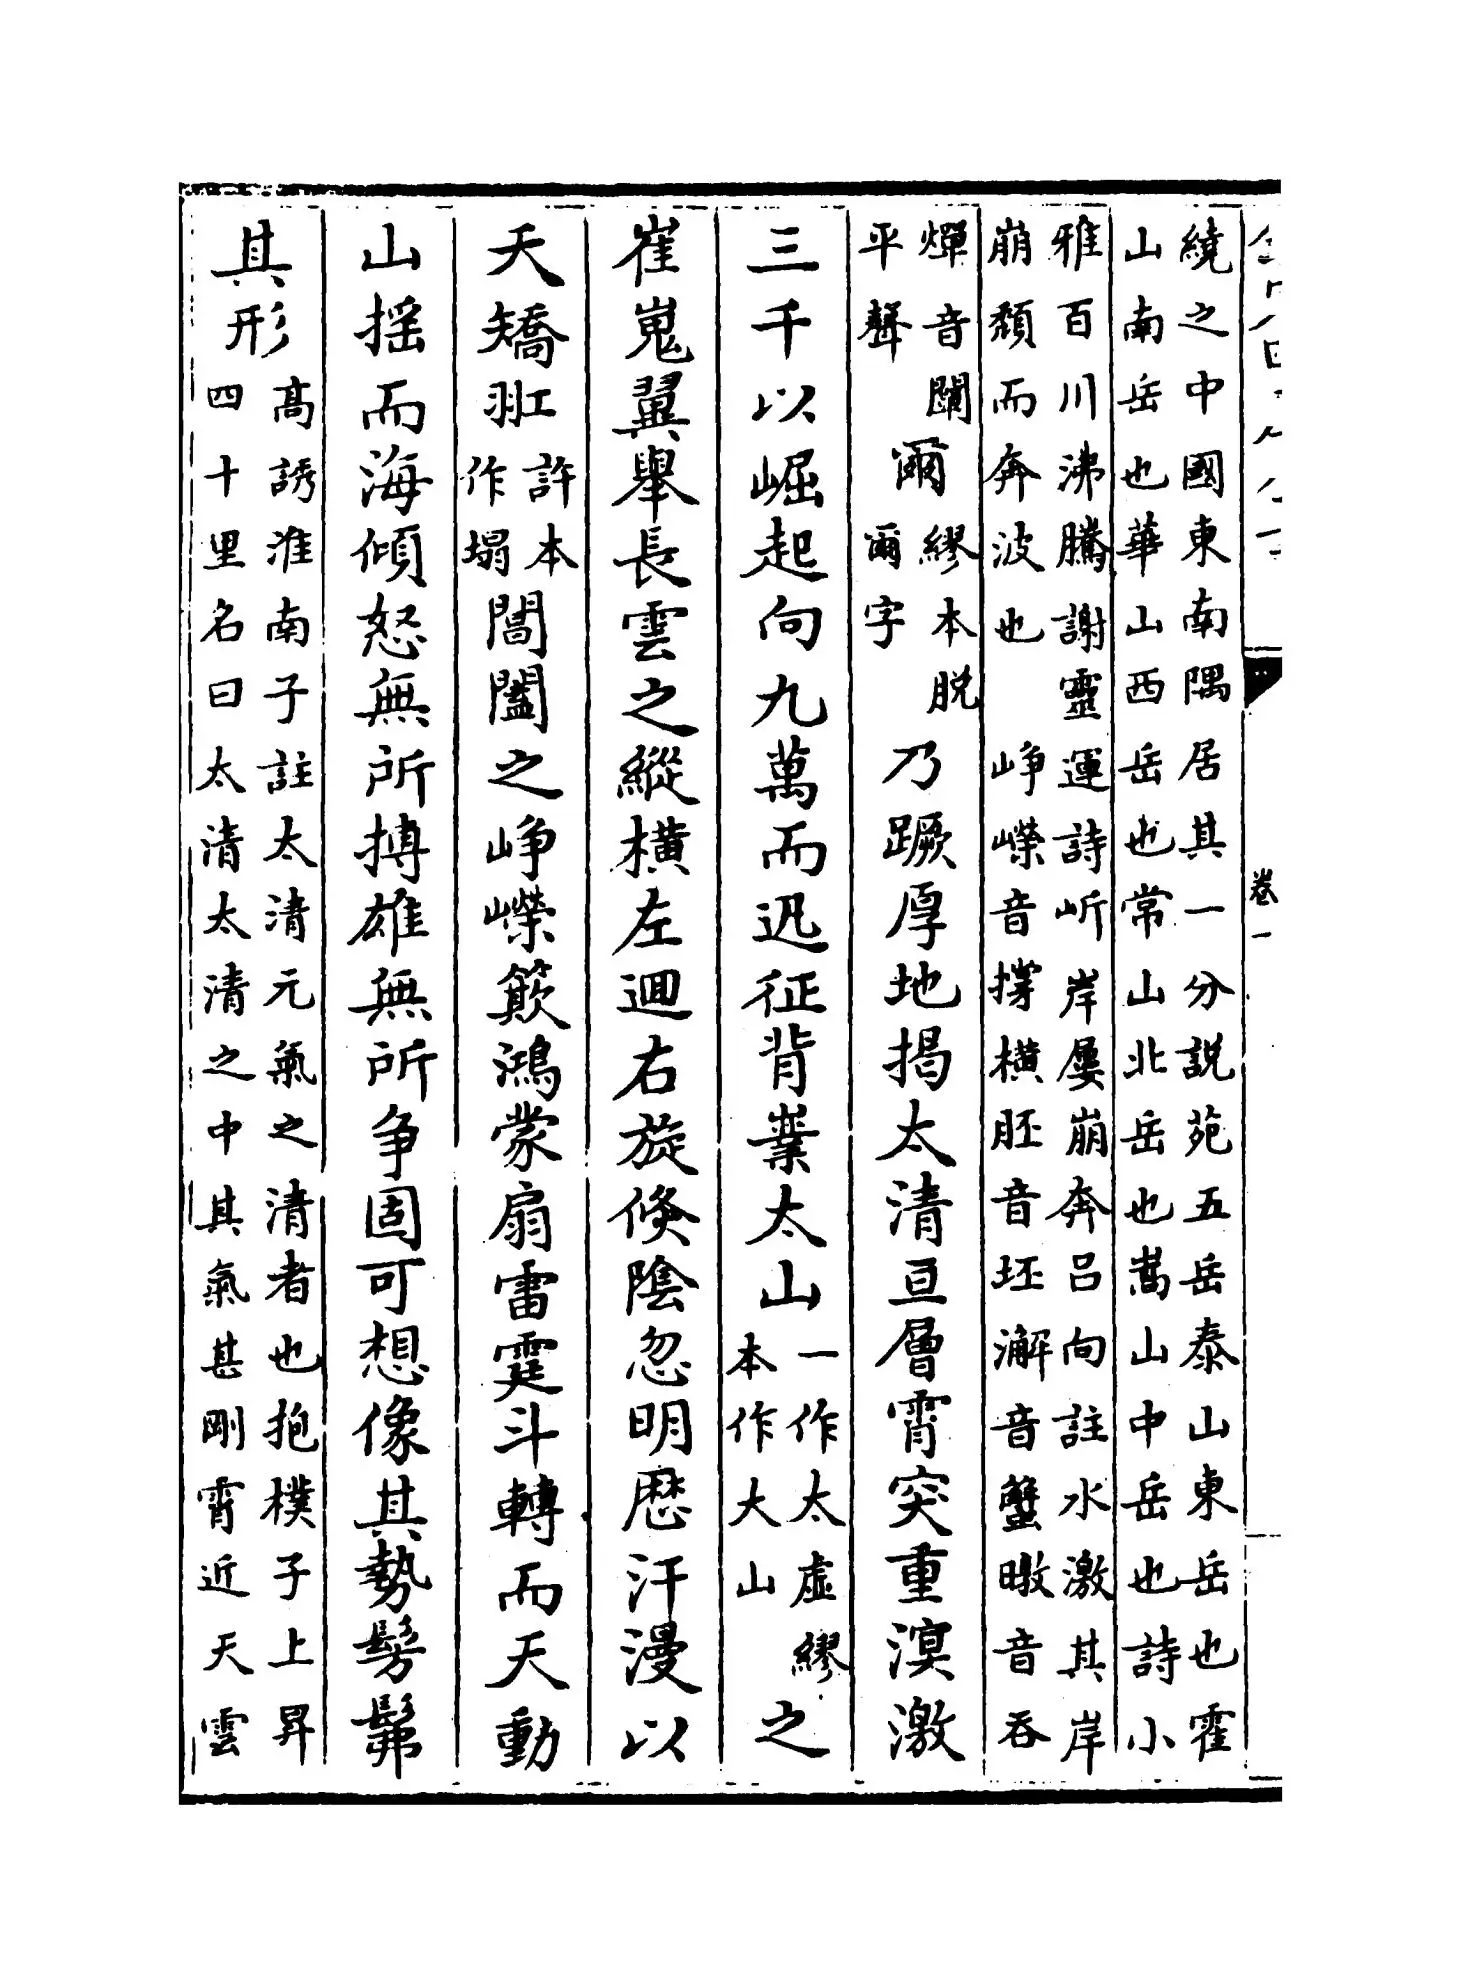 卷一
繞之中國東南隅居其一分說苑五岳泰山東岳也霍
山南岳也華山西岳也常山北岳也嵩山中岳也詩小
雅百川沸騰謝靈運詩圻岸屢崩奔呂向註水激其岸
崩頽而奔波也 崢嶸音撐橫胚音坯澥音蟹暾音吞
燀音闡平聲爾繆本脫爾字乃蹶厚地揭太清亘層霄突重溟激
三千以崛起向九萬而迅征背嶪太山一作太虛繆本作大山之
崔嵬翼舉長雲之縱橫左迴右旋倐陰忽明歷汗漫以
夭矯䎕許本作塌閶闔之崢嶸簸鴻蒙扇雷霆斗轉而天動
山摇而海傾怒無所搏雄無所爭固可想像其勢髣髴
其形高誘淮南子註太清元氣之清者也抱樸子上昇四十里名曰太清太清之中其氣甚剛霄近天雲